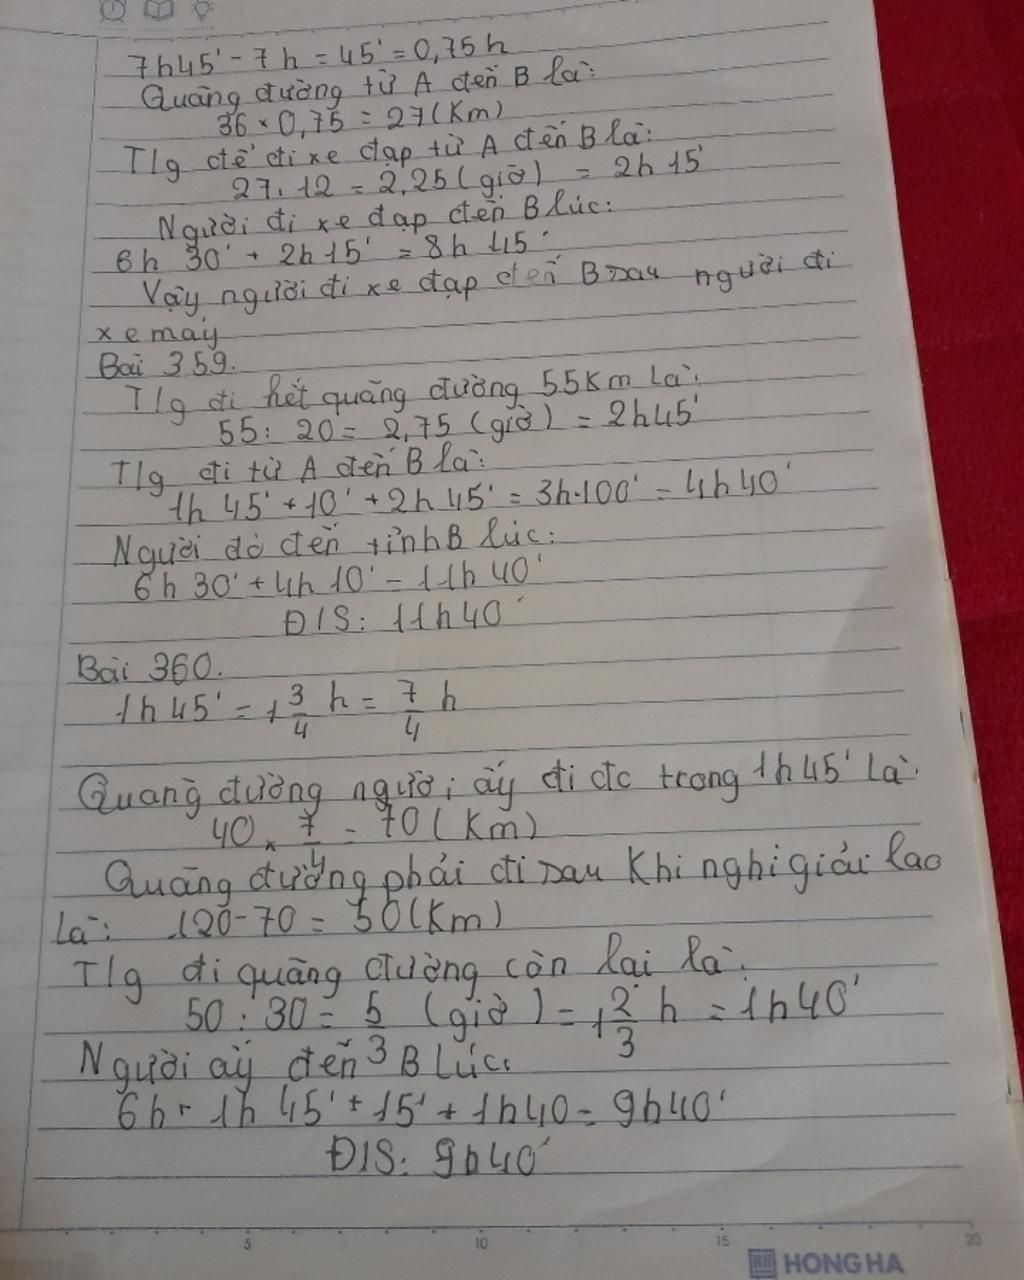 7h45' - 7h = 45' = 0,75h
Quãng đường từ A đến B là:
36 × 0,75 = 27 (Km)
T/g để đi xe đạp từ A đến B là:
27 : 12 = 2,25 (giờ) = 2h 15'
Người đi xe đạp đến B lúc:
6h 30' + 2h 15' = 8h 45'
Vậy người đi xe đạp đến B sau người đi
xe máy
Bài 359.
T/g đi hết quãng đường 55Km là:
55 : 20 = 2,75 (giờ) = 2h45'
T/g đi từ A đến B là:
1h 45' + 10' + 2h 45' = 3h 100' = 4h 40'
Người đó đến tỉnh B lúc:
6h 30' + 4h 10' = 11h 40'
Đ/S: 11h40'
Bài 360.
1h 45' = 1 3/4 h = 7/4 h
Quãng đường người ấy đi đc trong 1h45' là:
40 × 7/4 = 70 (Km)
Quãng đường phải đi sau khi nghỉ giải lao
là: 120 - 70 = 50 (Km)
T/g đi quãng đường còn lại là:
50 : 30 = 5/3 (giờ) = 1 2/3 h = 1h40'
Người ấy đến B lúc:
6h + 1h 45' + 15' + 1h40 = 9h40'
Đ/S: 9h40'
5 10 15 20
HONG HA